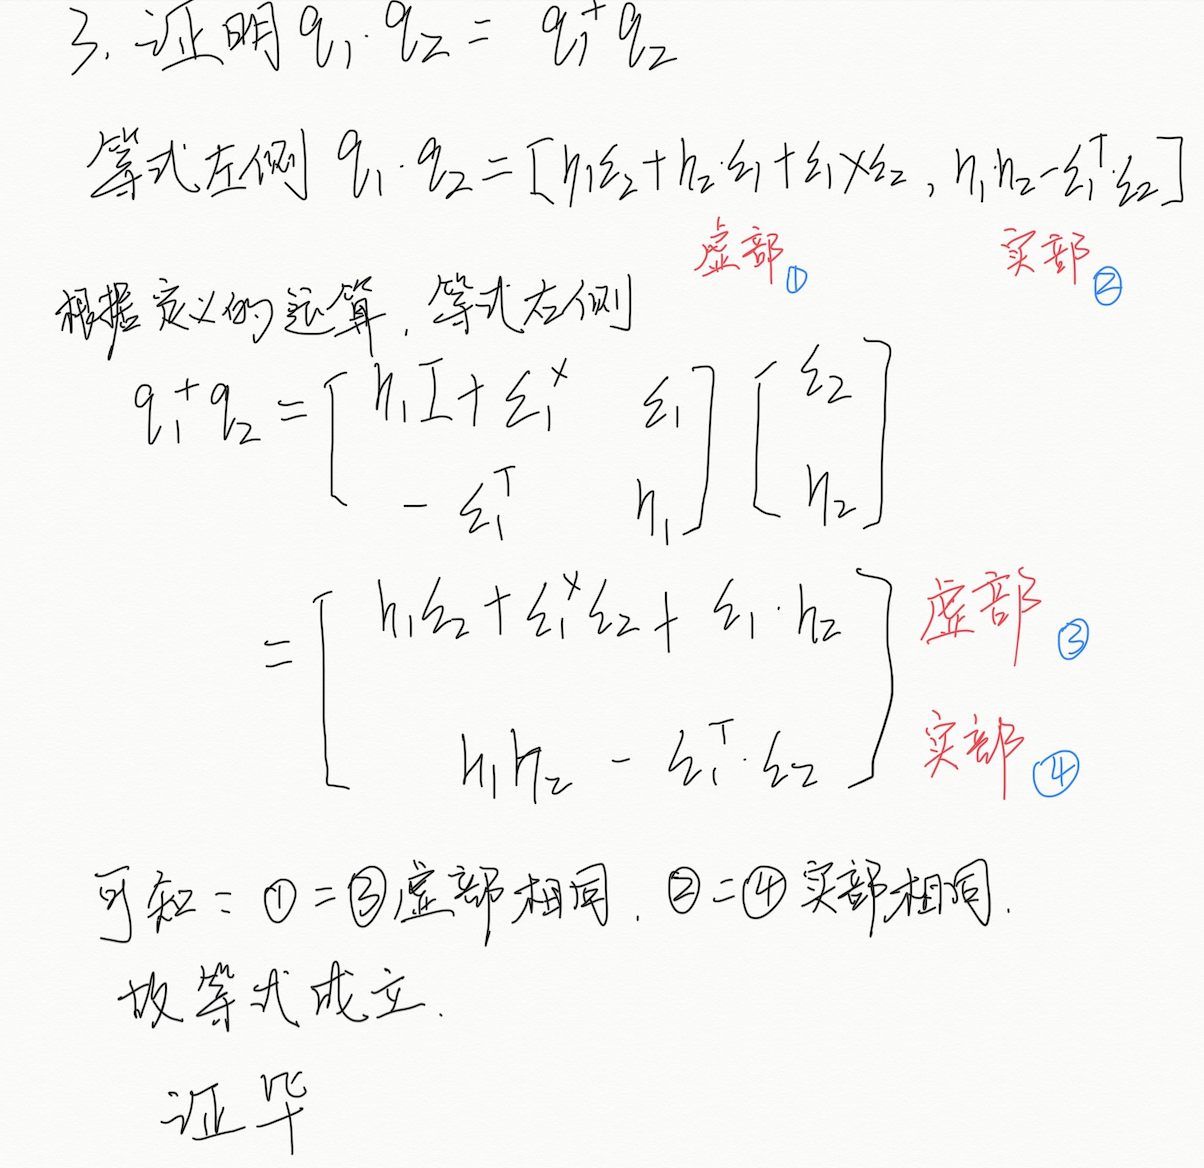 3. 证明 q₁·q₂ = q₁⁺q₂
等式左侧 q₁·q₂ = [η₁ε₂+η₂·ε₁+ε₁×ε₂, η₁·η₂-ε₁ᵀ·ε₂]
虚部① 实部②
根据定义的运算, 等式左侧
q₁⁺q₂ = [η₁I+ε₁^× ε₁; -ε₁ᵀ η₁] [ε₂; η₂]
= [η₁ε₂+ε₁^×ε₂+ε₁·η₂; η₁η₂-ε₁ᵀ·ε₂] 虚部③ 实部④
可知: ①=③虚部相同. ②=④实部相同.
故等式成立.
证毕